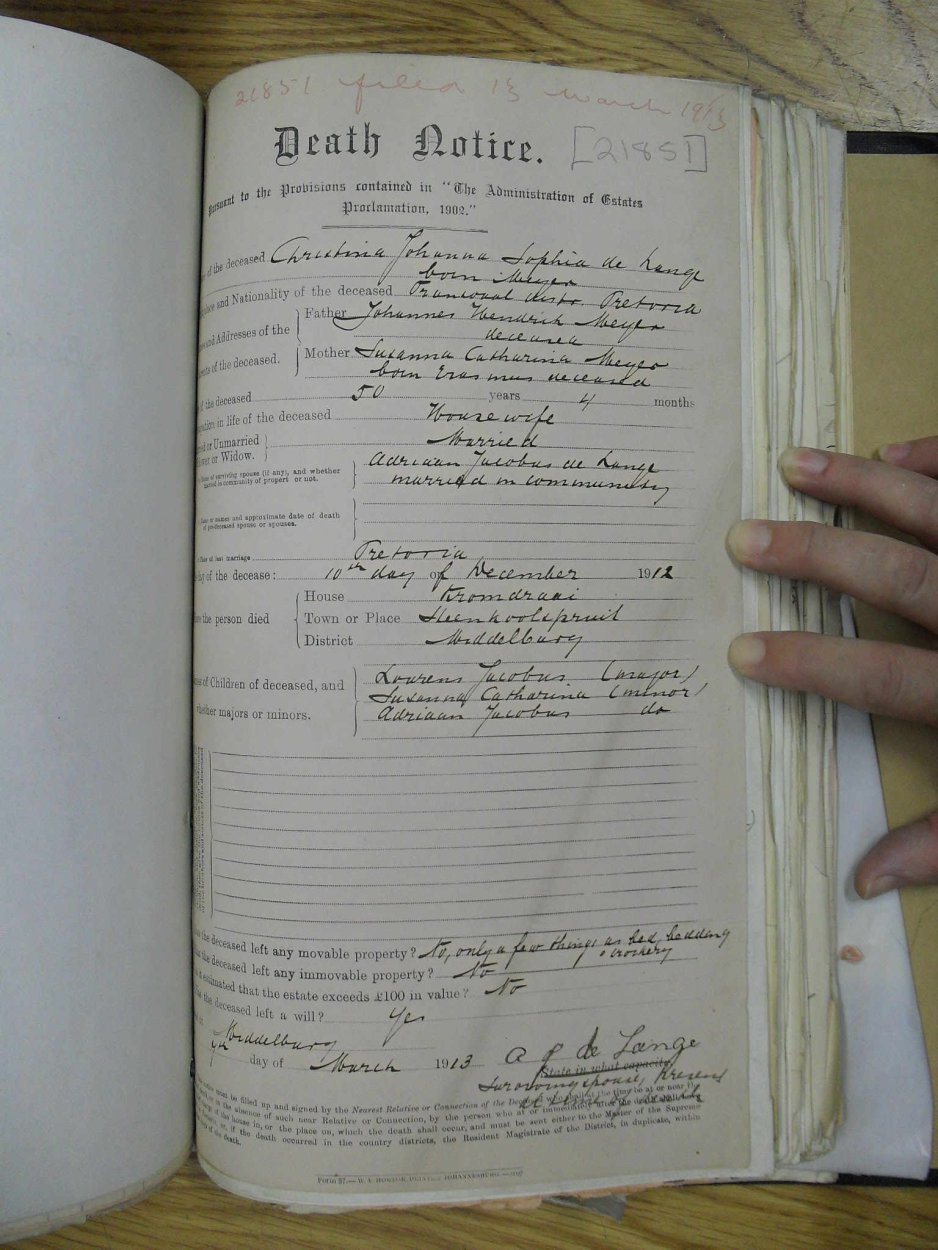 21851 filed 13 March 1913
Death Notice. [21851]
Pursuant to the Provisions contained in "The Administration of Estates
Proclamation, 1902."
of the deceased Christina Johanna Sophia de Lange
born Meyer
and Nationality of the deceased Transvaal distr. Pretoria
and Addresses of the
of the deceased.
Father Johannes Hendrik Meyer
deceased
Mother Susanna Catharina Meyer
born Erasmus deceased
of the deceased 50 years 4 months
in life of the deceased House wife
or Unmarried
or Widow. Married
of surviving spouse (if any), and whether
married in community of property or not.
Adriaan Jacobus de Lange
married in community
or names and approximate date of death
of pre-deceased spouse or spouses.
of last marriage Pretoria
of the decease: 10th day of December 1912
the person died
House Kromdraai
Town or Place Steenkoolspruit
District Middelburg
of Children of deceased, and
whether majors or minors.
Lourens Jacobus (major)
Susanna Catharina (minor)
Adriaan Jacobus do
the deceased left any movable property? No, only a few things as bed, bedding
crockery
the deceased left any immovable property? No
estimated that the estate exceeds £100 in value? No
the deceased left a will? Yes
Middelburg
7th day of March 1913 A J de Lange
State in what capacity
Surviving spouse, present
must be filled up and signed by the Nearest Relative or Connection of the Deceased
in the absence of such near Relative or Connection, by the person who at or immediately after the death
of the house in, or the place on, which the death shall occur, and must be sent either to the Master of the Supreme
if the death occurred in the country districts, the Resident Magistrate of the District, in duplicate, within
of the death.
Form 37.— JOHANNESBURG.